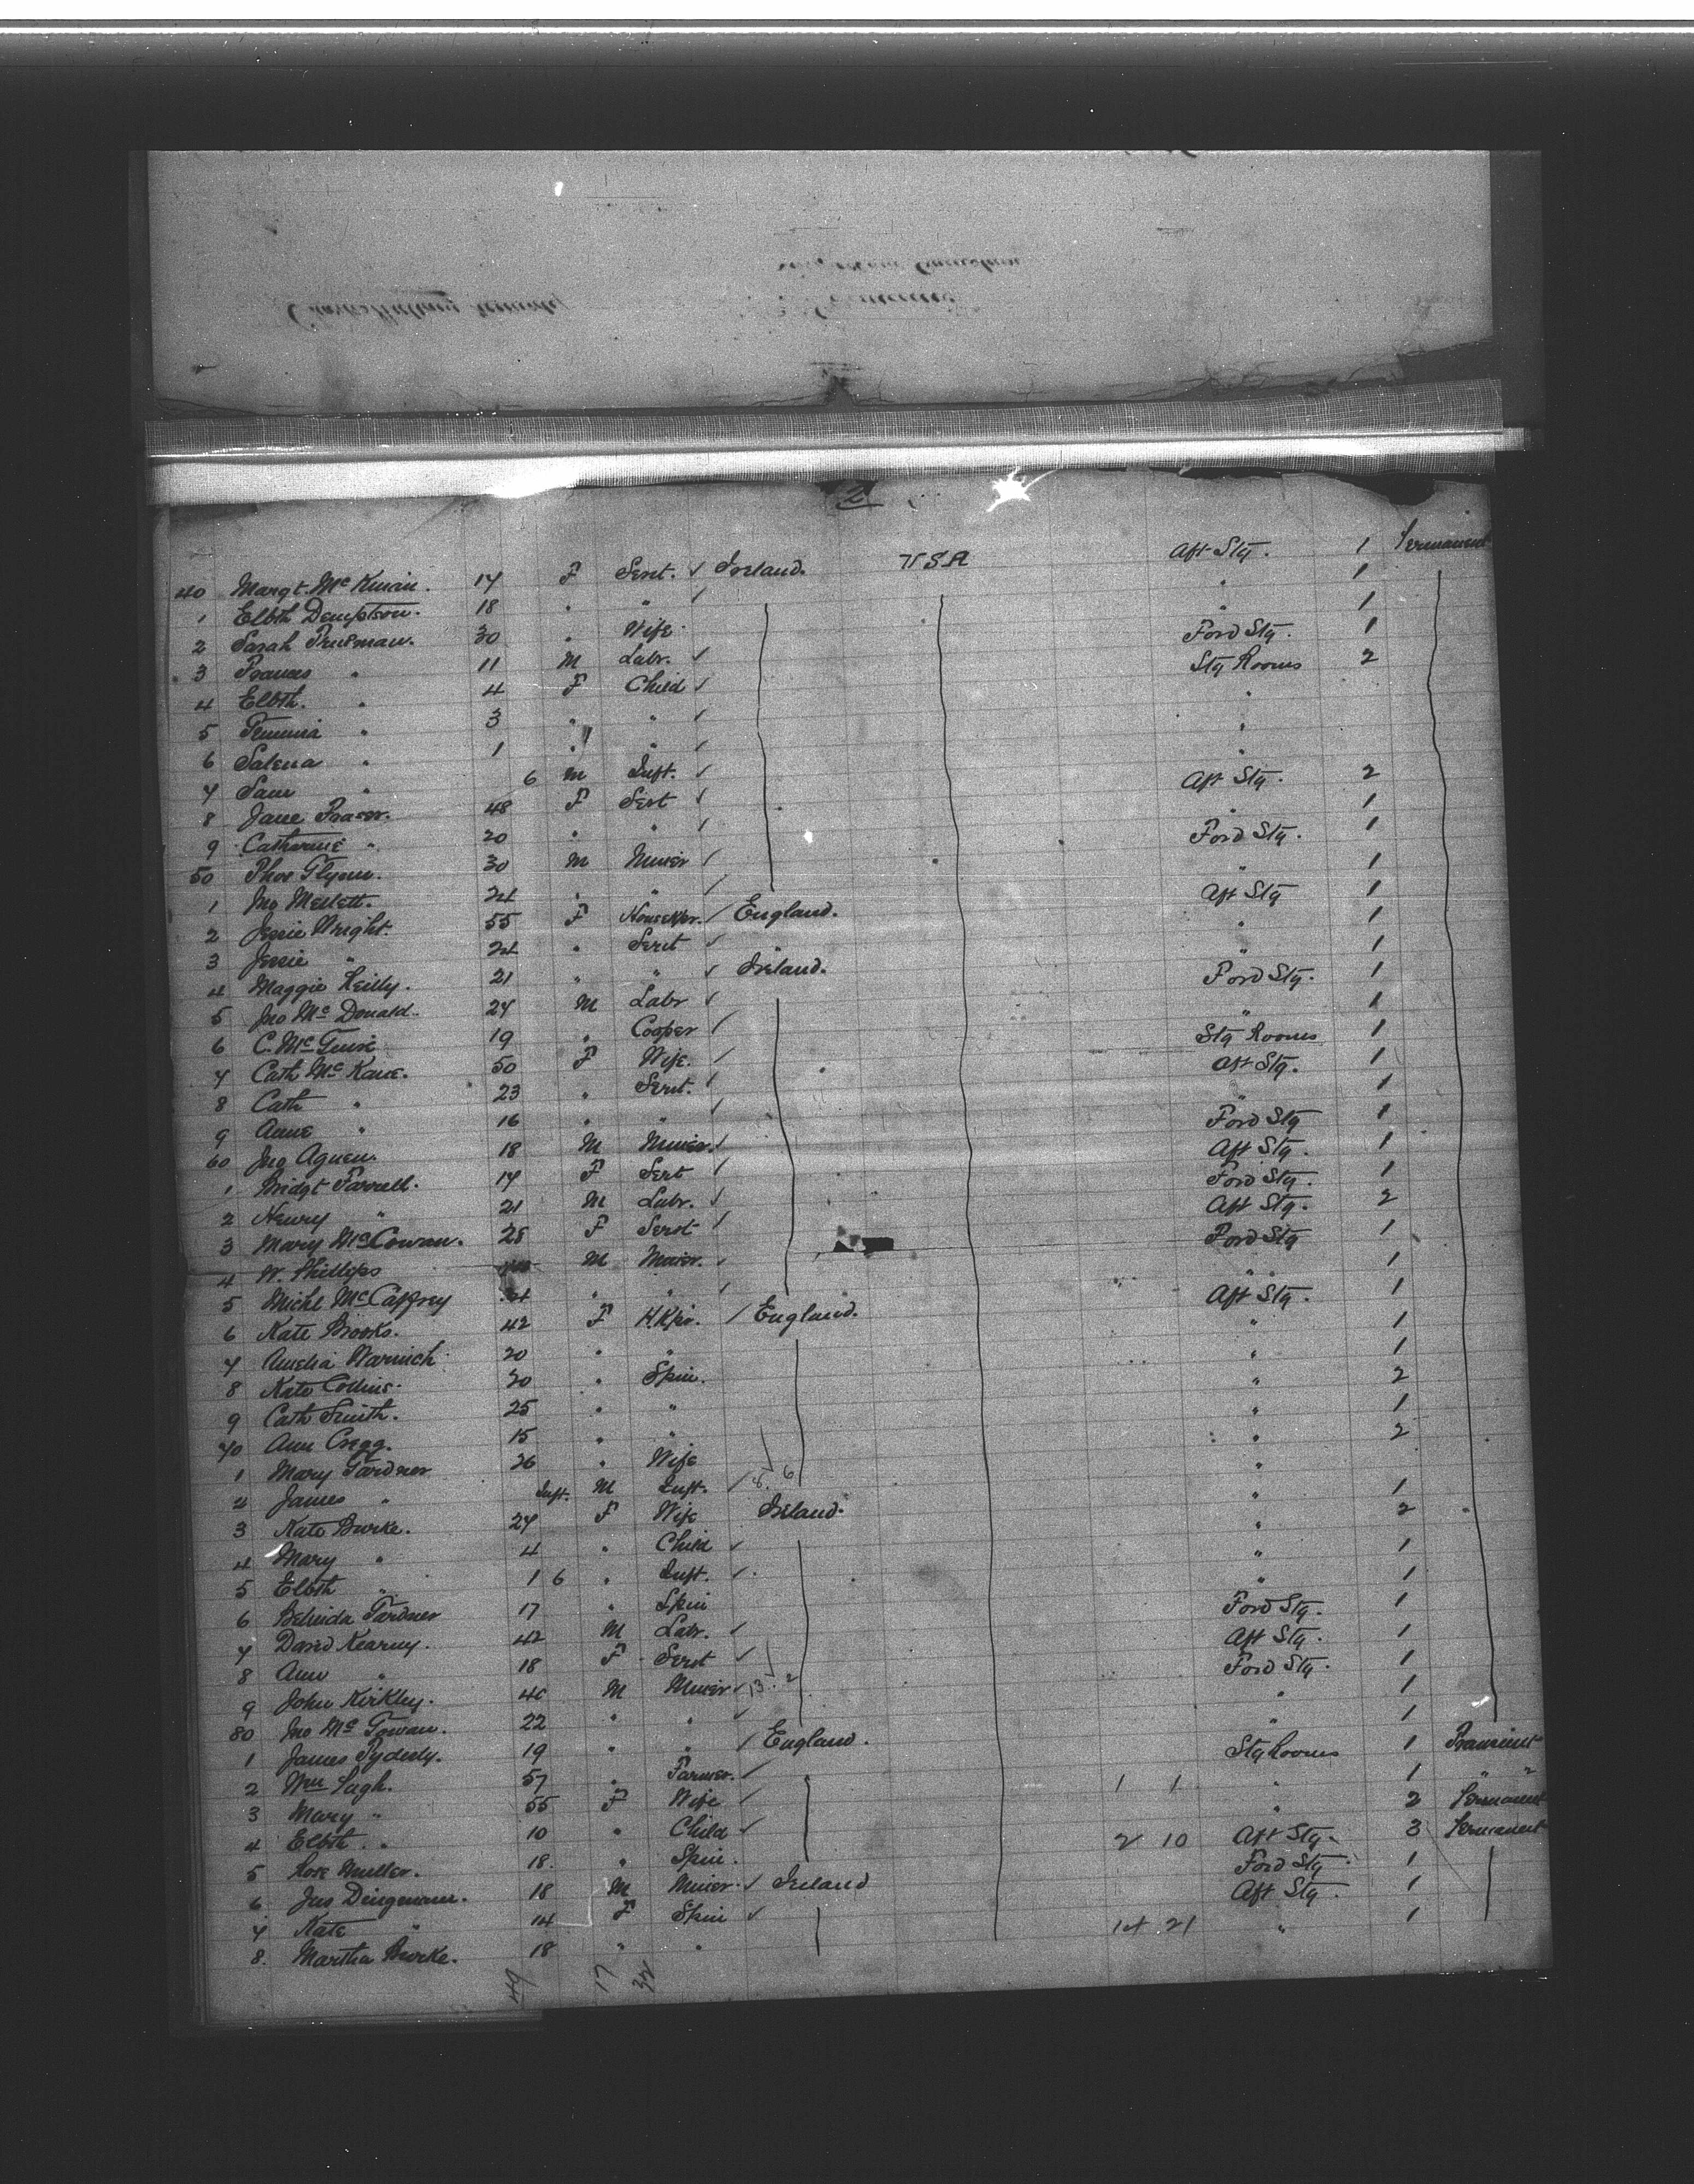 2
40 Margt. Mc Kinin. 17 F Servt. ✓ Ireland. U S A Aft Stg. 1 Permanent
1 Elbth Dempston. 18 " " ✓ " 1
2 Sarah 30 " Wife " 1
3 Frances " 11 M Labr. ✓ Ford Stg. 1
4 Elbth. " 4 F Child ✓ Stg Rooms 2
5 " 3 " " ✓ "
6 Salena " 1 " " ✓ "
7 Sam " 6 M Inft. ✓ "
8 Jane Fraser. 48 F Sert ✓ Aft Stg. 2
9 Catharine " 20 " " ✓ " 1
50 Thos Flynn. 30 M Miner ✓ Ford Stg. 1
1 Jno 24 " " ✓ " 1
2 Jessie Wright. 55 F House Kpr. ✓ England. Aft Stg 1
3 Jessie " 24 " Servt ✓ " " 1
4 Maggie Reilly. 21 " " ✓ Ireland. " 1
5 Jno Mc Donald. 27 M Labr ✓ Ford Stg. 1
6 C. Mc 19 " Cooper ✓ " 1
7 Cath Mc Kane. 50 F Wife. ✓ Stg Rooms 1
8 Cath " 23 " Servt. ✓ Aft Stg. 1
9 Anne " 16 " " ✓ " 1
60 Jno Agnew. 18 M Miner. ✓ Ford Stg 1
1 Bridgt Farrell. 17 F Sert ✓ Aft Stg. 1
2 Henry " 21 M Labr. ✓ Ford Stg. 1
3 Mary McCowan. 28 F Servt ✓ Aft Stg. 2
4 W. Phillips M Miner. ✓ Ford Stg 1
5 Michl McCaffrey " " ✓ " 1
6 Kate Brooks. 42 F H.Kpr. ✓ England. Aft Stg. 1
7 Amelia Warnick 20 " " " 1
8 Kate Collins. 20 " Spin. " 1
9 Cath Smith. 25 " " " 2
70 Ann Cregg. 15 " " " 1
1 Mary Gardner 26 " Wife " 2
2 James " Inft. M Inft. ✓ "
3 Kate Burke. 27 F Wife Ireland. " 1
4 Mary " 4 " Child ✓ " 2
5 Elbth " 1 6 " Inft. ✓ " 1
6 Belinda Gardner 17 " Spin " 1
7 David Kearny. 42 M Labr. ✓ Ford Stg. 1
8 Ann " 18 F Servt ✓ Aft Stg. 1
9 John Kirkley. 40 M Miner ✓ Ford Stg. 1
80 Jno Mc Gowan. 22 " " ✓ " 1
1 James 19 " " ✓ England. " 1
2 Wm 57 " Farmer. ✓ 1 1 Stg Rooms 1 Transient
3 Mary " 55 F Wife ✓ " 1 " "
4 Elbth " 10 " Child ✓ 2 10 " 2 Permanent
5 Rose Muller. 18. " Spin. Aft Stg. 3 Permanent
6 Jas Dingman. 18 M Miner. ✓ Ireland Ford Stg. 1
7 Kate " 14 F Spin ✓ Aft Stg. 1
8. Martha Burke. 18 " " 14 21 " 1
49 17 32